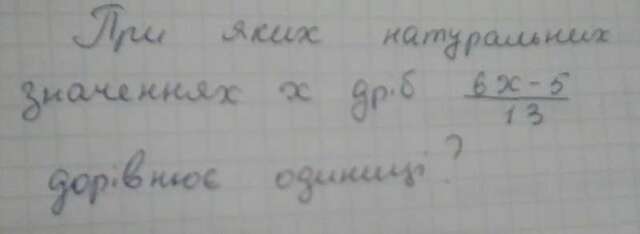 При яких натуральних
значеннях x др.б (6x-5)/13
дорівнює одиниці?